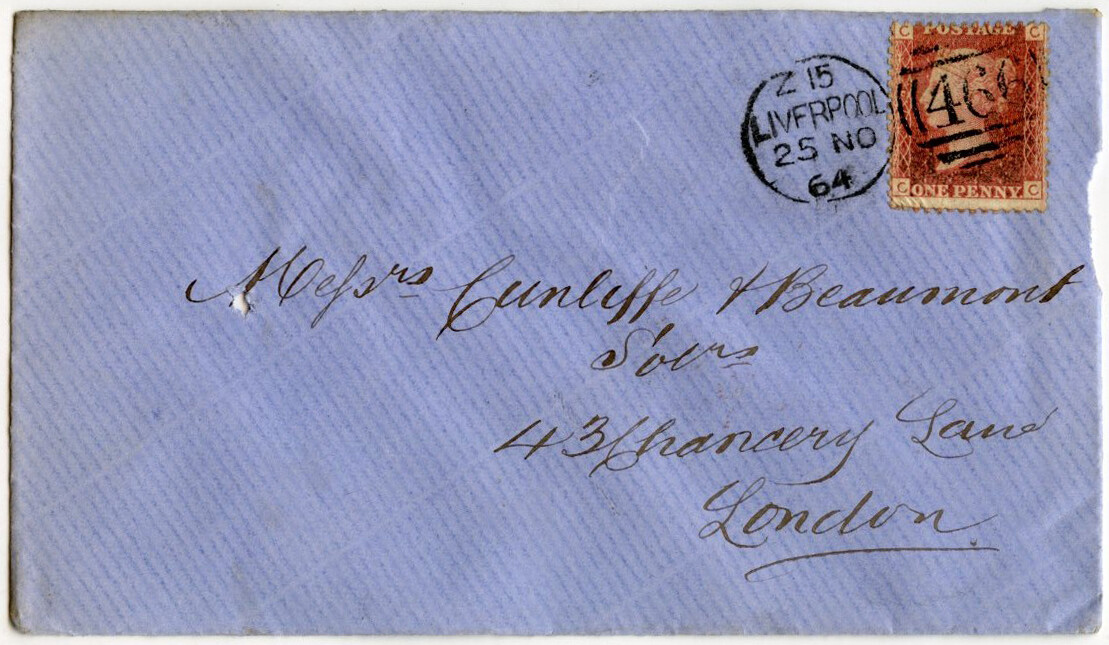 C POSTAGE C
Z 15
LIVERPOOL
25 NO
64
466
C ONE PENNY. C
Messrs Cunliffe & Beaumont
Solrs
43 Chancery Lane
London